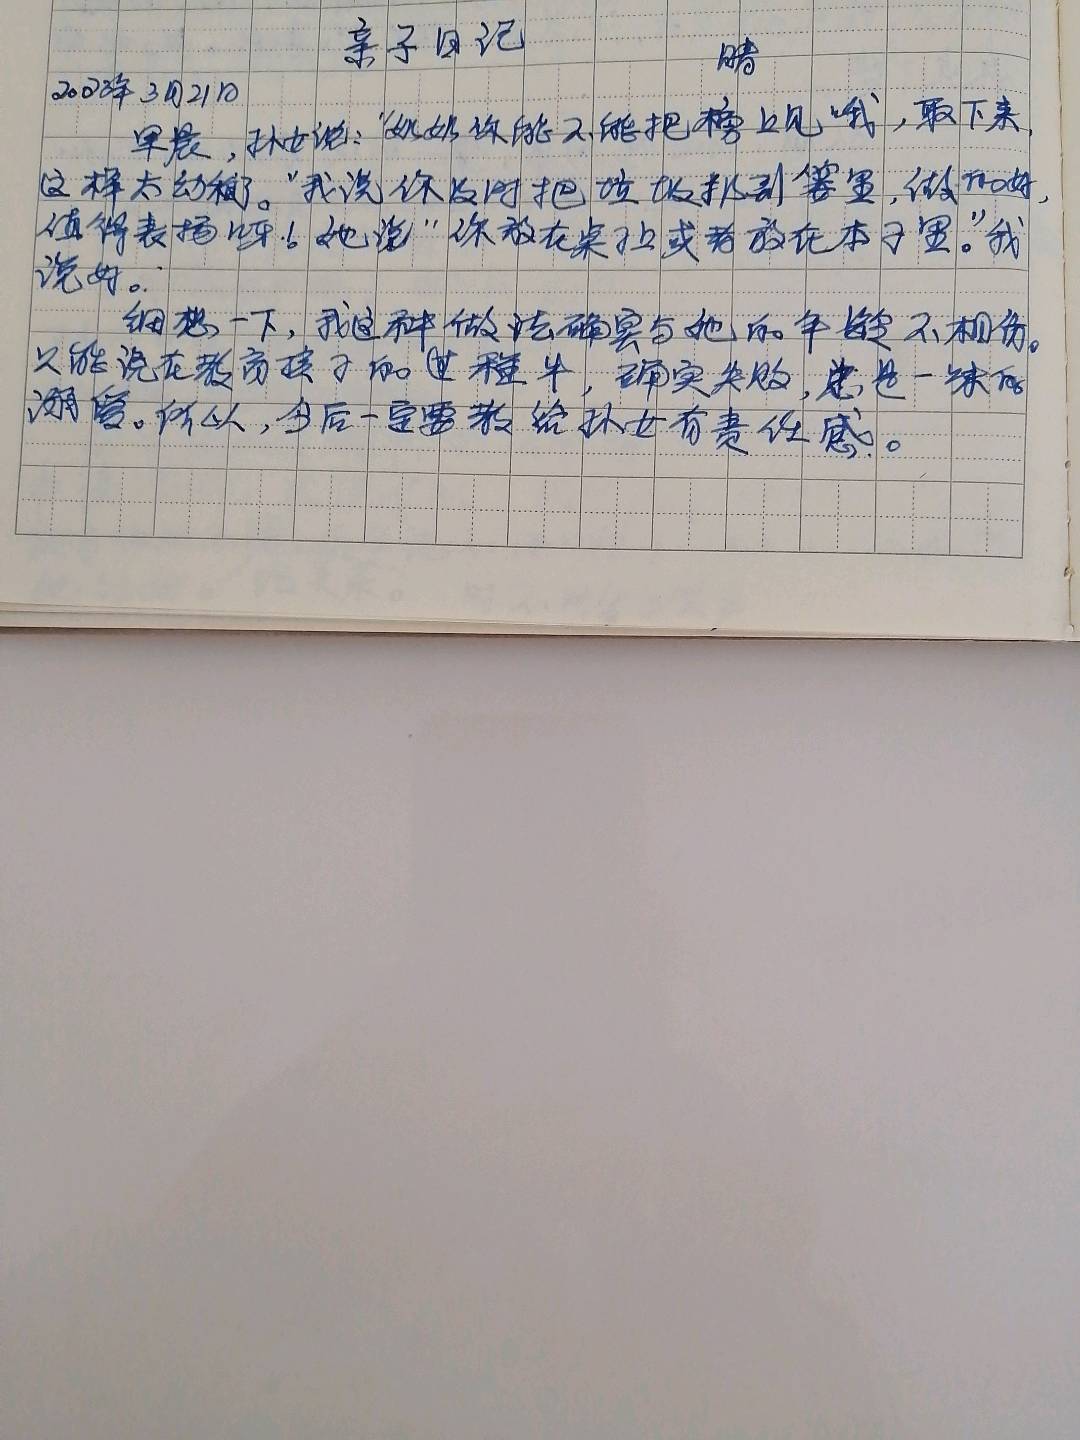 亲子日记
晴
2023年3月21日
早晨，孙女说："奶奶你能不能把榜上见哦，取下来，
这样太幼稚了。"我说你及时把垃圾扒到篓里，做的好，
值得表扬呀！她说"你放在桌子上或者放在本子里。"我
说好。
细想一下，我这种做法确实与她的年龄不相仿。
只能说在教育孩子的过程中，确实失败，总是一味的
溺爱。所以，今后一定要教给孙女有责任感。